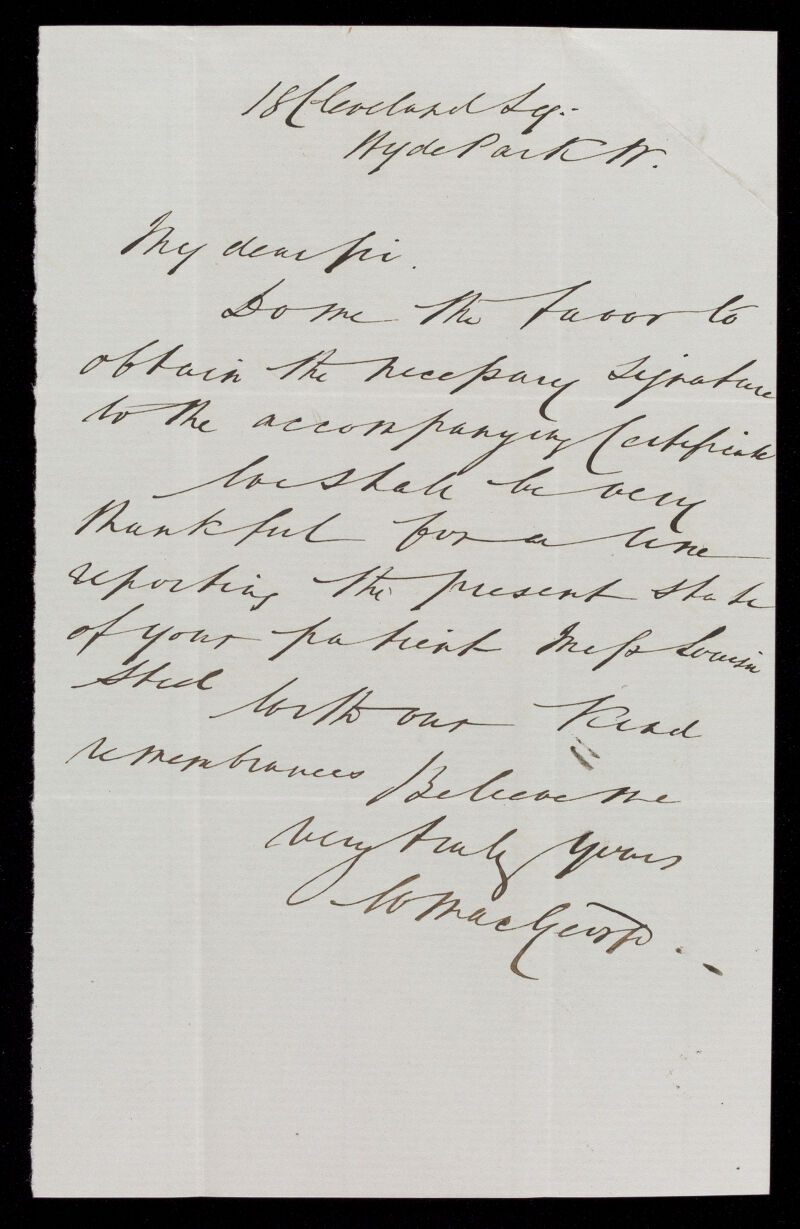 18 Cleveland Sq:
Hyde Park W.
My dear Sir.
Do me the favor to
obtain the necessary signature
to the accompanying Certificate
We shall be very
thankful for a line
reporting the present state
of your patient Miss Louisa
Steel With our Kind
remembrances Believe me
very truly yours
W MacGeorge